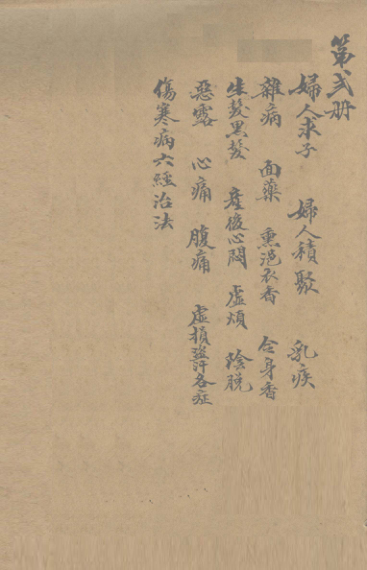 第弍册
婦人求子 婦人積聚 乳疾
雜病 面藥 熏浥衣香 令身香
生髮黑髮 產後心悶 虛煩 陰脫
惡露 心痛 腹痛 虛損盜汗各症
傷寒病六經治法